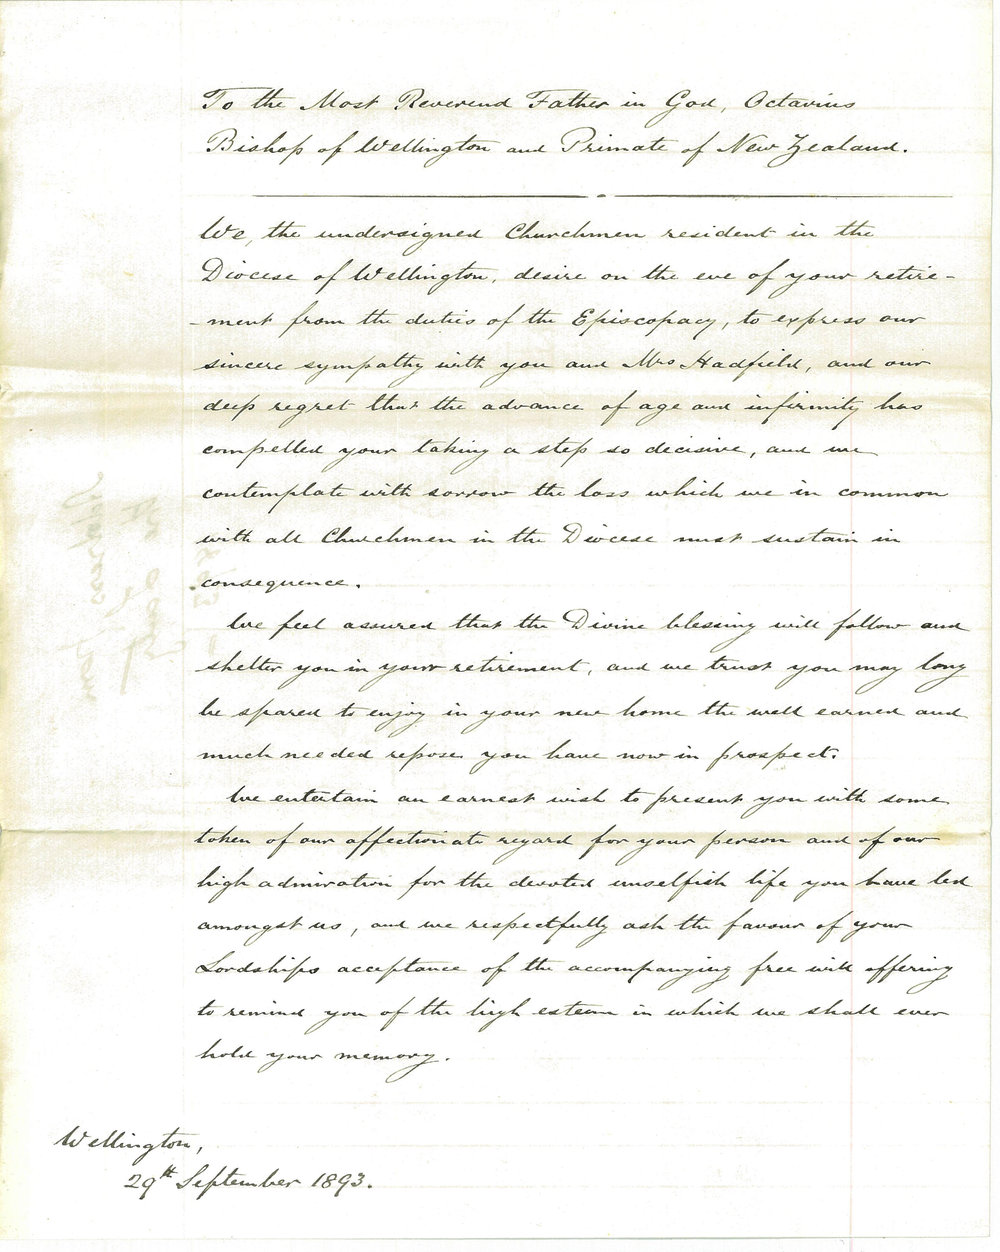 To the Most Reverend Father in God, Octavius
Bishop of Wellington and Primate of New Zealand.
We, the undersigned Churchmen resident in the
Diocese of Wellington, desire on the eve of your retire-
-ment from the duties of the Episcopacy, to express our
sincere sympathy with you and Mrs Hadfield, and our
deep regret that the advance of age and infirmity has
compelled your taking a step so decisive, and we
contemplate with sorrow the loss which we in common
with all Churchmen in the Diocese must sustain in
consequence.
We feel assured that the Divine blessing will follow and
shelter you in your retirement, and we trust you may long
be spared to enjoy in your new home the well earned and
much needed repose you have now in prospect.
We entertain an earnest wish to present you with some
token of our affectionate regard for your person and of our
high admiration for the devoted unselfish life you have led
amongst us, and we respectfully ask the favour of your
Lordships acceptance of the accompanying free will offering
to remind you of the high esteem in which we shall ever
hold your memory.
Wellington,
29th September 1893.